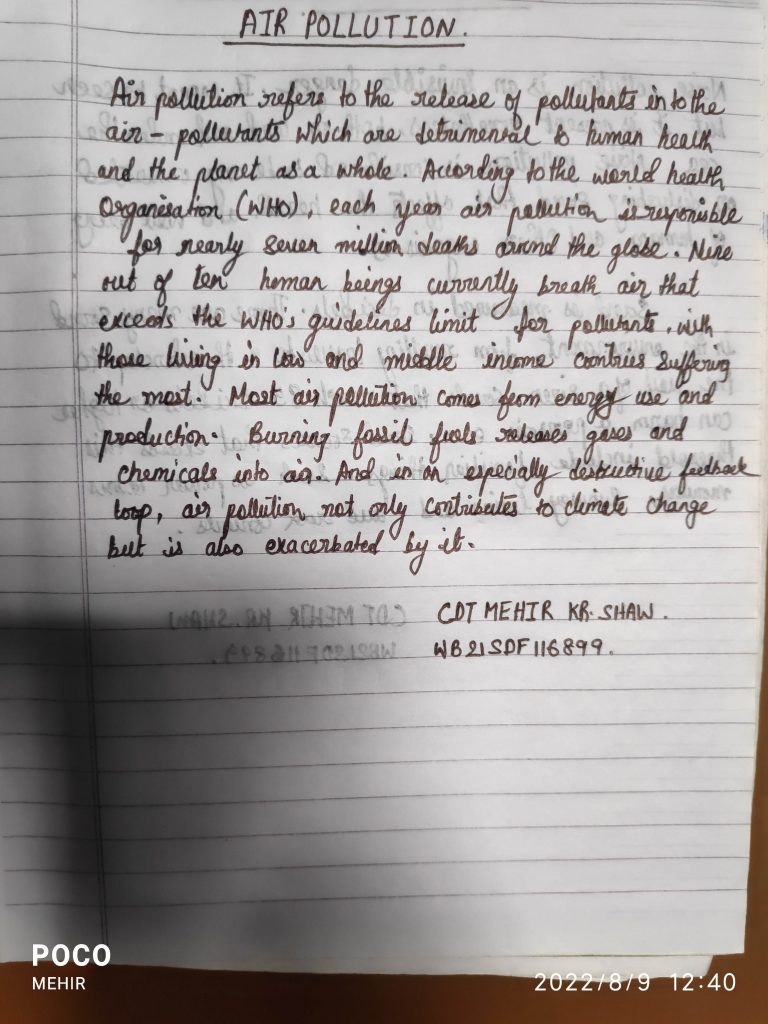 AIR POLLUTION.
Air pollution refers to the release of pollutants into the
air - pollutants which are detrimental to human health
and the planet as a whole. According to the world health
Organisation (WHO), each year air pollution is responsible
for nearly seven million deaths around the globe. Nine
out of ten human beings currently breath air that
exceeds the WHO's guidelines limit for pollutants, with
those living in low and middle income contries suffering
the most. Most air pollution comes from energy use and
production. Burning fossil fuels releases gases and
chemicals into air. And in an especially destructive feedback
loop, air pollution not only contributes to climate change
but is also exacerbated by it.
CDT MEHIR KR. SHAW.
WB21SDF116899.
POCO
MEHIR
2022/8/9 12:40